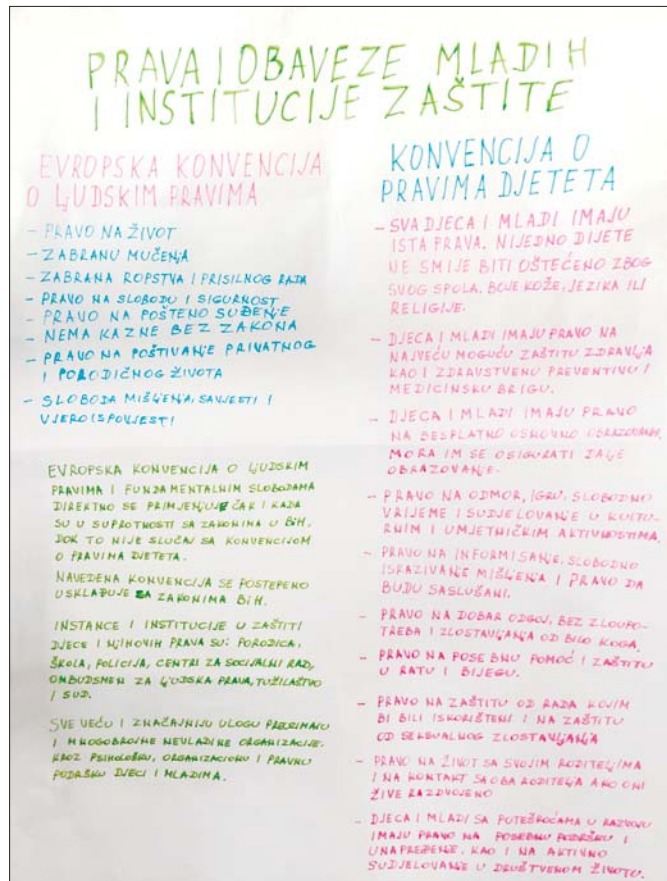 PRAVA I OBAVEZE MLADIH
I INSTITUCIJE ZAŠTITE
EVROPSKA KONVENCIJA
O LJUDSKIM PRAVIMA
- PRAVO NA ŽIVOT
- ZABRANU MUČENJA
- ZABRANA ROPSTVA I PRISILNOG RADA
- PRAVO NA SLOBODU I SIGURNOST
- PRAVO NA POŠTENO SUĐENJE
- NEMA KAZNE BEZ ZAKONA
- PRAVO NA POŠTIVANJE PRIVATNOG
I PORODIČNOG ŽIVOTA
- SLOBODA MIŠLJENJA, SAVJESTI I
VJEROISPOVJESTI
EVROPSKA KONVENCIJA O LJUDSKIM
PRAVIMA I FUNDAMENTALNIM SLOBODAMA
DIREKTNO SE PRIMJENJUJE ČAK I KADA
SU U SUPROTNOSTI SA ZAKONIMA U BiH.
DOK TO NIJE SLUČAJ SA KONVENCIJOM
O PRAVIMA DJETETA.
NAVEDENA KONVENCIJA SE POSTEPENO
USKLAĐUJE SA ZAKONIMA BiH.
INSTANCE I INSTITUCIJE U ZAŠTITI
DJECE I NJIHOVIH PRAVA SU: PORODICA,
ŠKOLA, POLICIJA, CENTRI ZA SOCIJALNI RAD,
OMBUDSMEN ZA LJUDSKA PRAVA, TUŽILAŠTVO
I SUD.
SVE VEĆU I ZNAČAJNIJU ULOGU PREUZIMAJU
I MNOGOBROJNE NEVLADINE ORGANIZACIJE.
KROZ PSIHOLOŠKU, ORGANIZACIONU I PRAVNU
PODRŠKU DJECI I MLADIMA.
KONVENCIJA O
PRAVIMA DJETETA
- SVA DJECA I MLADI IMAJU
ISTA PRAVA. NIJEDNO DIJETE
NE SMIJE BITI OŠTEĆENO ZBOG
SVOG SPOLA, BOJE KOŽE, JEZIKA ILI
RELIGIJE.
- DJECA I MLADI IMAJU PRAVO NA
NAJVEĆU MOGUĆU ZAŠTITU ZDRAVLJA
KAO I ZDRAVSTVENU PREVENTIVU I
MEDICINSKU BRIGU.
- DJECA I MLADI IMAJU PRAVO
NA BESPLATNO OSNOVNO OBRAZOVANJE,
MORA IM SE OSIGURATI DALJE
OBRAZOVANJE.
- PRAVO NA ODMOR, IGRU, SLOBODNO
VRIJEME I SUDJELOVANJE U KULTU-
RNIM I UMJETNIČKIM AKTIVNOSTIMA.
- PRAVO NA INFORMISANJE, SLOBODNO
ISKAZIVANJE MIŠLJENJA I PRAVO DA
BUDU SASLUŠANI.
- PRAVO NA DOBAR ODGOJ, BEZ ZLOUPO-
TREBA I ZLOSTAVLJANJA OD BILO KOGA.
- PRAVO NA POSEBNU POMOĆ I ZAŠTITU
U RATU I BIJEGU.
- PRAVO NA ZAŠTITU OD RADA KOJIM
BI BILI ISKORIŠTENI I NA ZAŠTITU
OD SEKSUALNOG ZLOSTAVLJANJA
- PRAVO NA ŽIVOT SA SVOJIM RODITELJIMA
I NA KONTAKT SA OBA RODITELJA AKO ONI
ŽIVE RAZDVOJENO
- DJECA I MLADI SA POTEŠKOĆAMA U RAZVOJU
IMAJU PRAVO NA POSEBNU PODRŠKU I
UNAPREĐENJE, KAO I NA AKTIVNO
SUDJELOVANJE U DRUŠTVENOM ŽIVOTU.